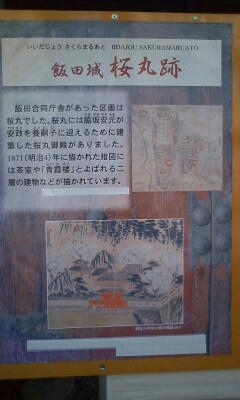 いいだじょう さくらまるあと IIDAJOU SAKURAMARUATO
飯田城 桜丸跡
飯田合同庁舎があった区画は
桜丸でした。桜丸には脇坂安元が
安政を養嗣子に迎えるために建
築した桜丸御殿がありました。
1871(明治4)年に描かれた指図に
は茶室や「青霞楼」とよばれる二
層の建物などが描かれています。